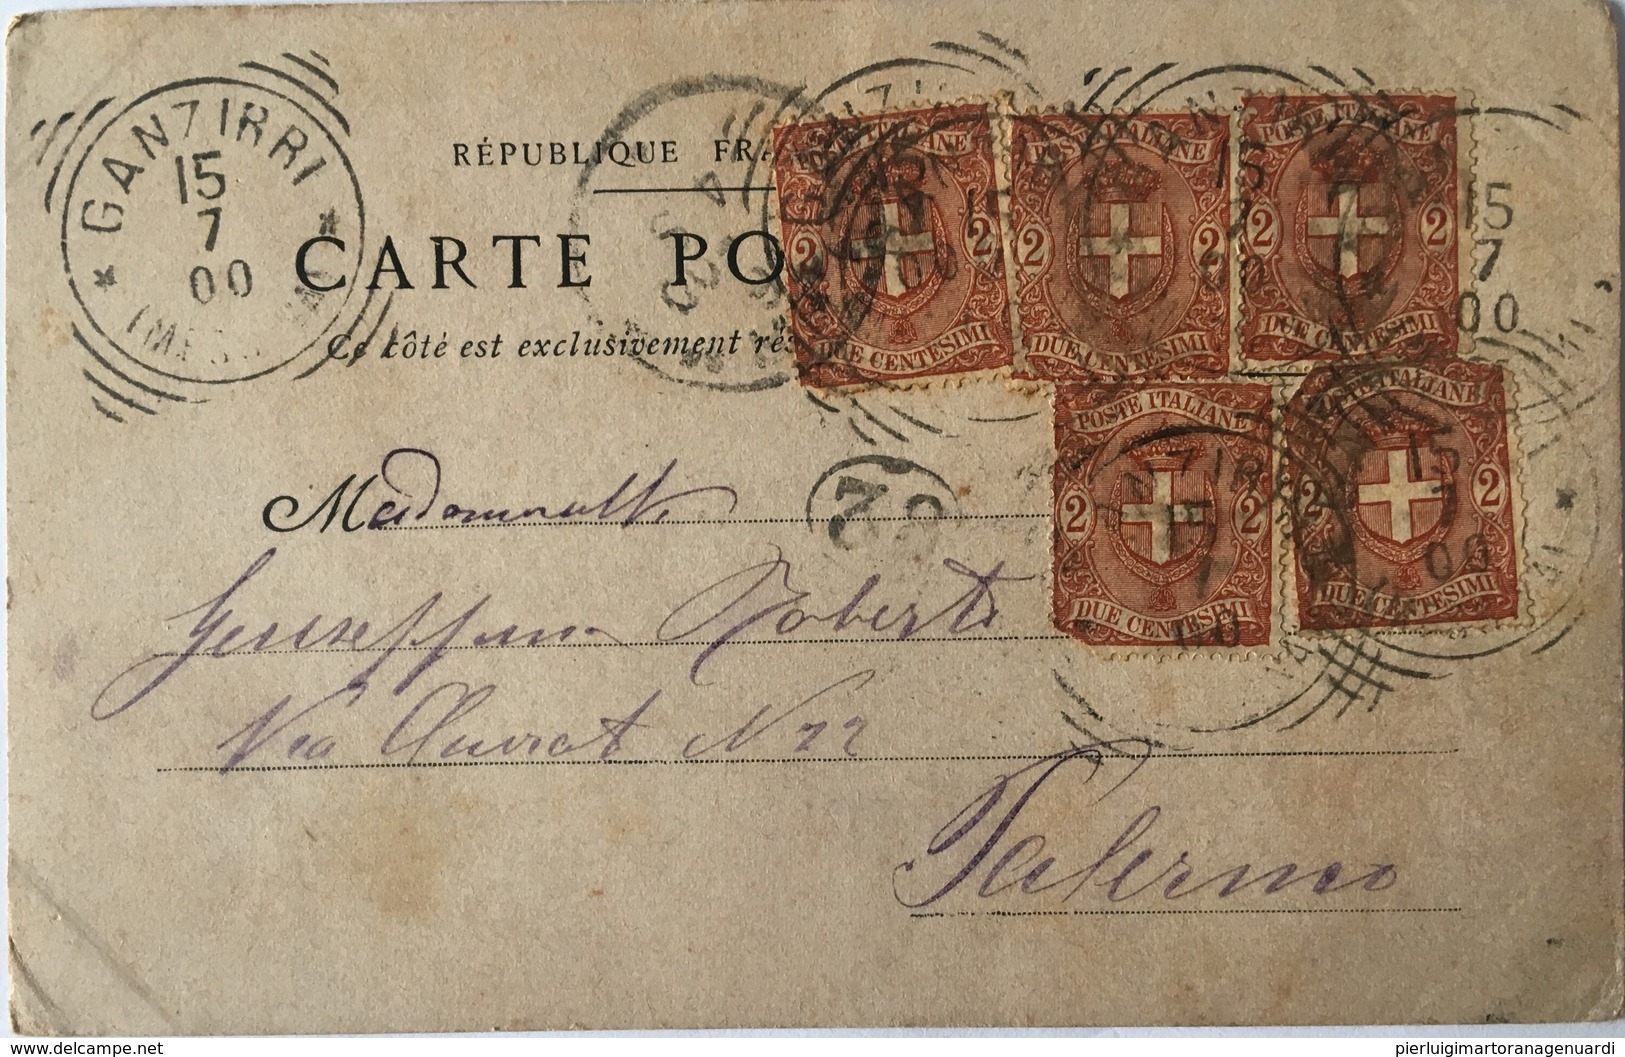 GANZIRRI
15
7
00
(MESSINA)
RÉPUBLIQUE FRA
CARTE PO
Ce côté est exclusivement rés
POSTE ITALIANE
2 2
DUE CENTESIMI
POSTE ITALIANE
2 2
DUE CENTESIMI
POSTE ITALIANE
2 2
DUE CENTESIMI
15
7
00
POSTE ITALIANE
2 2
DUE CENTESIMI
POSTE ITALIANE
2 2
DUE CENTESIMI
15
7
00
32
Mademoiselle
Giuseppina Roberti
Via Cluverio N 22
Palermo
delcampe.net
pierluigimartoranagenuardi